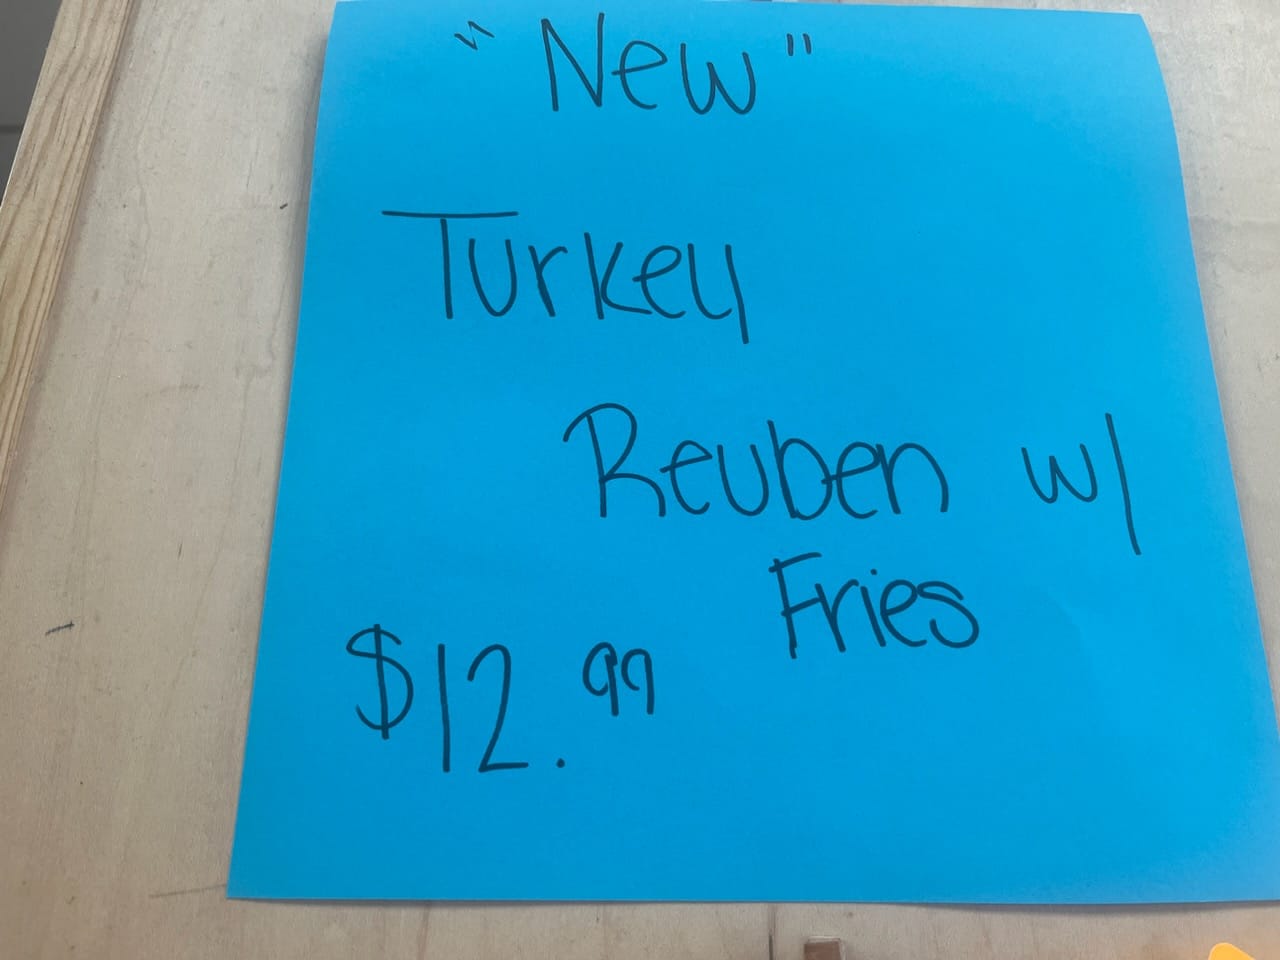 "New"
Turkey
Reuben w/
Fries
$12.99